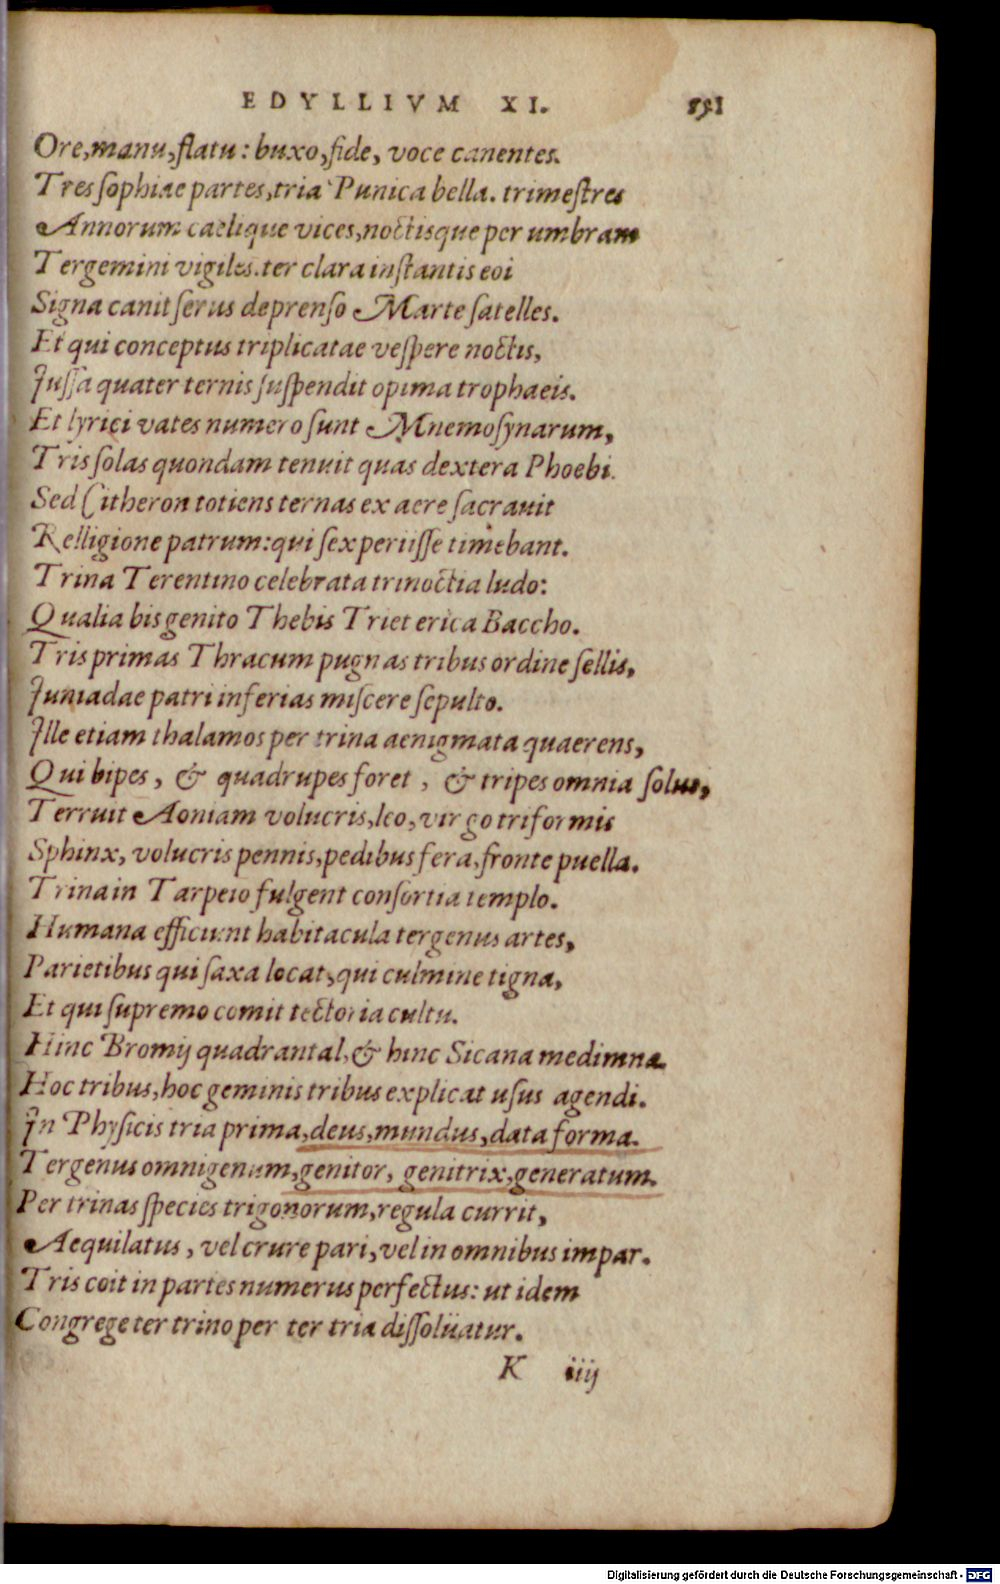 EDYLLIVM XI. 151
Ore,manu,flatu: buxo,fide, voce canentes.
Tres sophiae partes,tria Punica bella. trimestres
Annorum caelique vices,noctisque per umbram
Tergemini vigiles.ter clara instantis eoi
Signa canit serus deprenso Marte satelles.
Et qui conceptus triplicatae vespere noctis,
Jussa quater ternis suspendit opima trophaeis.
Et lyrici vates numero sunt Mnemosynarum,
Tris solas quondam tenuit quas dextera Phoebi.
Sed Citheron totiens ternas ex aere sacravit
Relligione patrum:qui sex periisse timebant.
Trina Terentino celebrata trinoctia ludo:
Qualia bis genito Thebis Trieterica Baccho.
Tris primas Thracum pugnas tribus ordine sellis,
Juniadae patri inferias miscere sepulto.
Ille etiam thalamos per trina aenigmata quaerens,
Qui bipes, & quadrupes foret, & tripes omnia solus,
Terruit Aoniam volucris,leo,virgo triformis
Sphinx, volucris pennis,pedibus fera,fronte puella.
Trina in Tarpeio fulgent consortia templo.
Humana efficiunt habitacula tergenus artes,
Parietibus qui saxa locat,qui culmine tigna,
Et qui supremo comit tectoria cultu.
Hinc Bromij quadrantal,& hinc Sicana medimna.
Hoc tribus,hoc geminis tribus explicat usus agendi.
In Physicis tria prima,deus,mundus,data forma.
Tergenus omnigenum,genitor, genitrix,generatum.
Per trinas species trigonorum,regula currit,
Aequilatus, vel crure pari,vel in omnibus impar.
Tris coit in partes numerus perfectus: ut idem
Congrege ter trino per ter tria dissolüatur.
K iiij
Digitalisierung gefördert durch die Deutsche Forschungsgemeinschaft - DFG